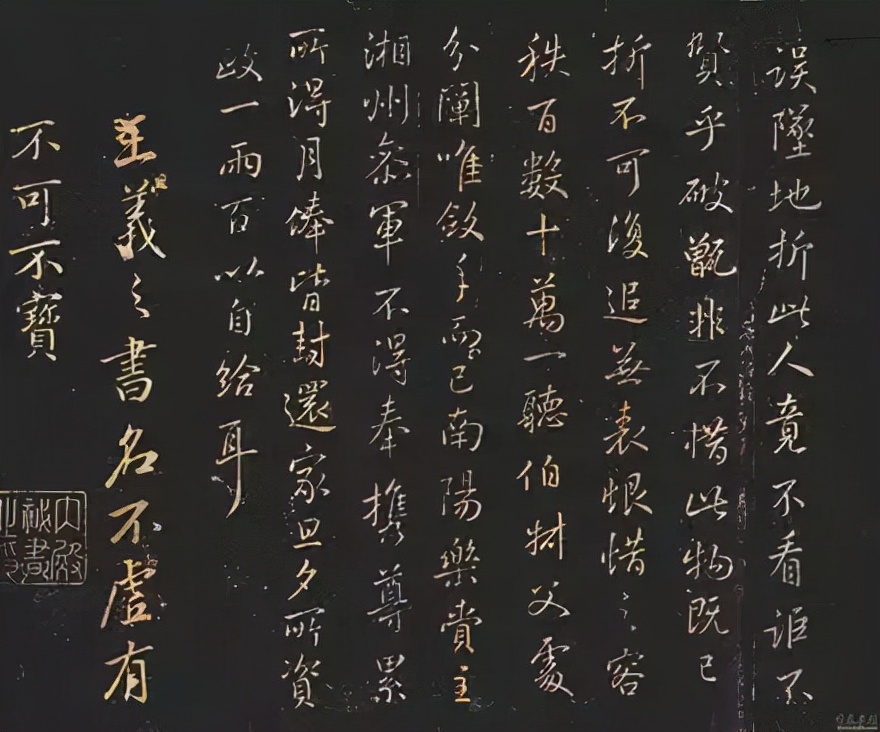 誤墜地折此人竟不看誰不
賢乎破甑非不惜此物既已
折不可復追無表恨惜之容
秩百数十萬一聽伯叔父處
分闌唯斂手而已南陽樂賞主
湘州叅軍不得奉攜尊累
所得月俸皆封還家旦夕所資
政一兩百以自給耳
王羲之書名不虛有
不可不寶
內殿秘書之印